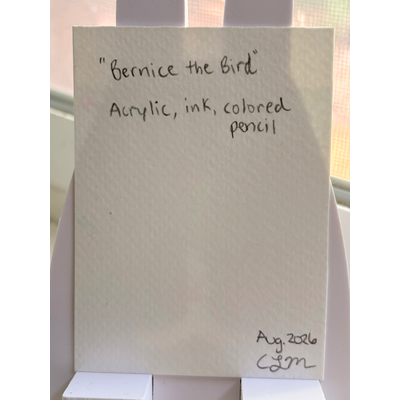 "Bernice the Bird"
Acrylic, ink, colored
pencil
Aug. 2026
CLM